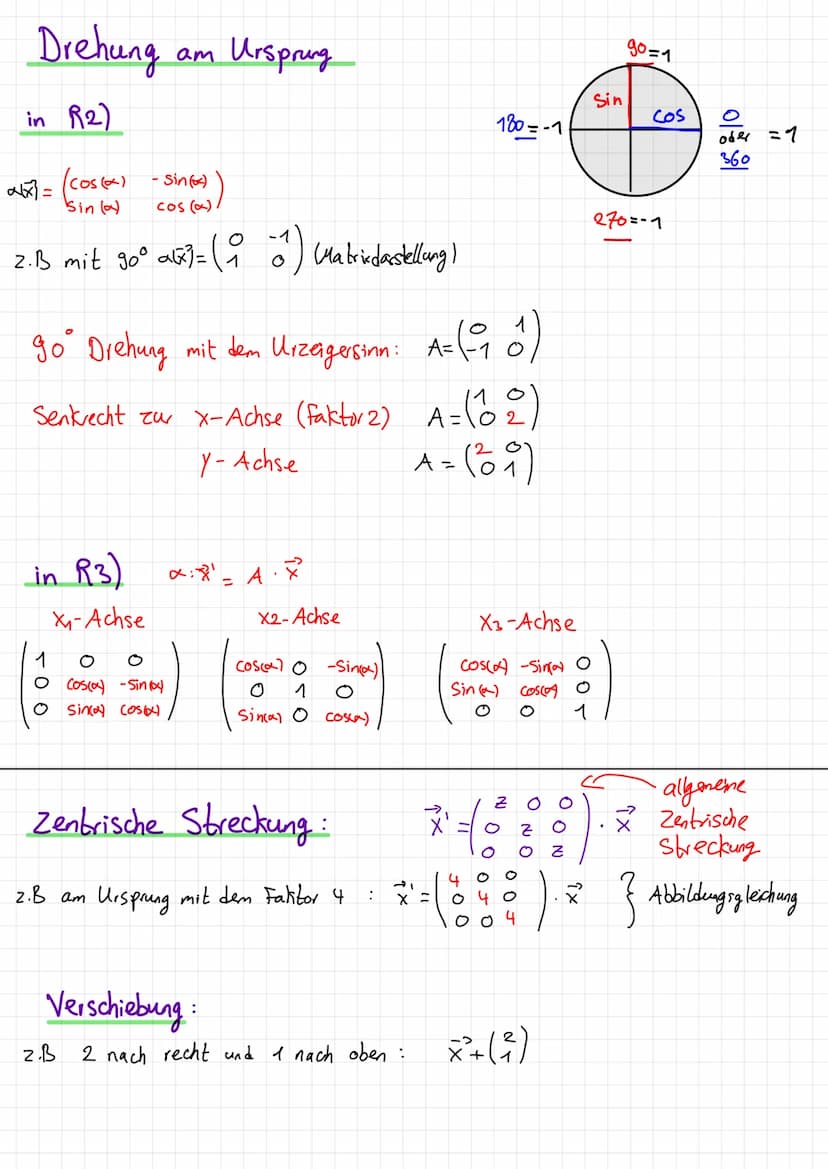 Drehung am Ursprung
90=1
sin
cos
180=-1
0
oder
=1
360
270=-1
in R2)
α(x⃗)= (cos(α) -sin(α)
sin(α) cos(α))
z.B mit 90° α(x⃗)= (0 -1
1 0) (Matrixdarstellung)
90° Drehung mit dem Urzeigersinn: A= (0 1
-1 0)
Senkrecht zur x-Achse (Faktor 2) A = (1 0
0 2)
y-Achse A = (2 0
0 1)
in R3) α: x⃗' = A · x⃗
x1-Achse x2-Achse x3-Achse
(1 0 0
0 cos(α) -sin(α)
0 sin(α) cos(α))
(cos(α) 0 -sin(α)
0 1 0
sin(α) 0 cos(α))
(cos(α) -sin(α) 0
sin(α) cos(α) 0
0 0 1)
Zentrische Streckung: x⃗' = (z 0 0
0 z 0
0 0 z) · x⃗
allgemeine
Zentrische
Streckung
z.B am Ursprung mit dem Faktor 4 : x⃗' = (4 0 0
0 4 0
0 0 4) · x⃗ } Abbildungsgleichung
Verschiebung:
z.B 2 nach recht und 1 nach oben : x⃗ + (2
1)